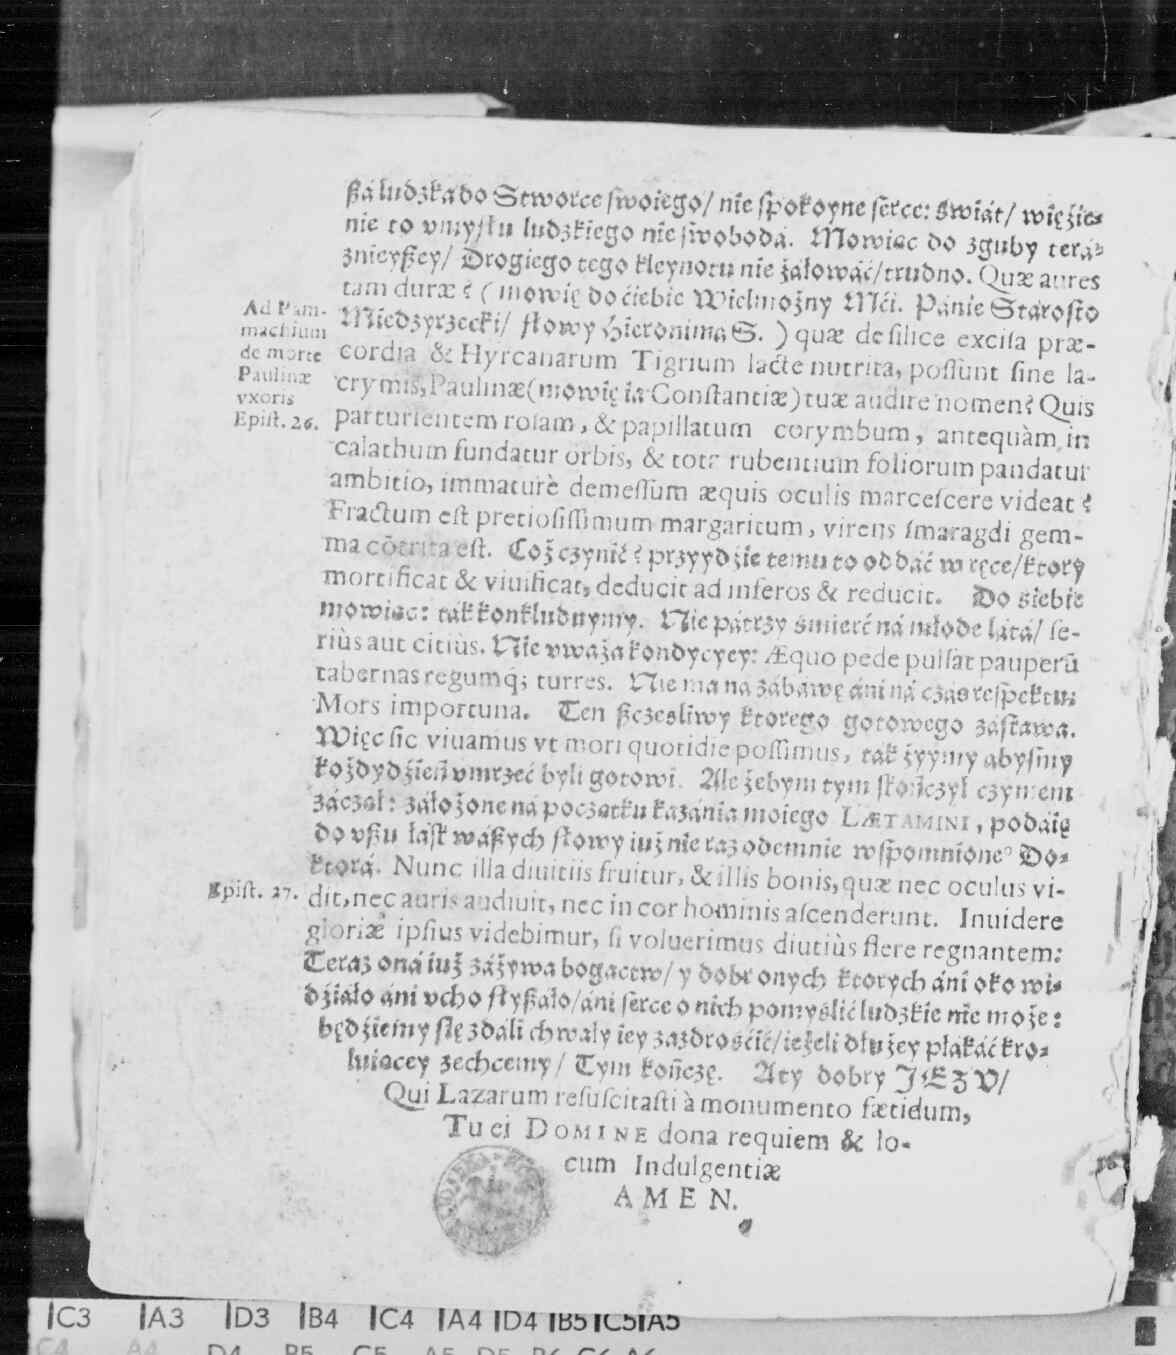 ßá ludzka do Stworce swoiego/ nie spokoyne serce: świát/ więźie-
nie to vmysłu ludzkiego nie swobodá. Mowiąc do zguby terá-
znieyßey/ Drogiego tego kleynotu nie żáłowáć/ trudno. Quæ aures
tam duræ? (mowię do ćiebie Wielmożny Mći. Pánie Stárosto
Miedzyrzecki/ słowy Hieronima S.) quæ de silice excisa præ-
cordia & Hyrcanarum Tigrium lacte nutrita, possunt sine la-
crymis, Paulinæ (mowię ia Constantiæ) tuæ audire nomen? Quis
parturientem rosam, & papillatum corymbum, antequàm in
calathum fundatur orbis, & tota rubentium foliorum pandatur
ambitio, immaturè demessum æquis oculis marcescere videat?
Fractum est pretiosissimum margaritum, virens smaragdi gem-
ma cõtrita est. Coż czynić? przyydźie temu to oddáć w ręce/ ktory
mortificat & viuificat, deducit ad inferos & reducit. Do siebie
mowiąc: ták konkludnymy. Nie pátrzy śmierć ná młode látá/ se-
riùs aut citiùs. Nie vważa kondycyey: Æquo pede pulsat pauperũ
tabernas regumq́; turres. Nie ma ná zábáwę áni ná czás respektu;
Mors importuna. Ten ßczesliwy ktorego gotowego zástawa.
Więc sic viuamus vt mori quotidie possimus, ták żyymy ábysmy
kożdy dźień vmrzeć byli gotowi. Ale żebym tym skończył czymem
záczął: záłożone ná początku kazánia moiego LÆTAMINI, podáię
do vßu łásk wáßych słowy iuż nie raz odemnie wspomnione° Do-
ktorá. Nunc illa diuitiis fruitur, & illis bonis, quæ nec oculus vi-
dit, nec auris audiuit, nec in cor hominis ascenderunt. Inuidere
gloriæ ipsius videbimur, si voluerimus diutiùs flere regnantem:
Teraz oná iuż záżywa bogactw/ y dobr onych ktorych áni oko wi-
dźiáło áni vcho słyßało/ áni serce o nich pomyslić ludzkie nie może:
będźiemy się zdáli chwały iey zazdrośćić/ ieżeli dłużey płákáć kro-
luiącey zechcemy/ Tym kończę. A ty dobry JEZV/
Qui Lazarum resuscitasti à monumento fœtidum,
Tu ei DOMINE dona requiem & lo-
cum Indulgentiæ
AMEN.
Ad Pam-
machium
de morte
Paulinæ
vxoris
Epist. 26.
Epist. 27.
C3 A3 D3 B4 C4 A4 D4 B5 C5 A5
C4 A4 D4 B5 C5 A5 D5 B6 C6 A6